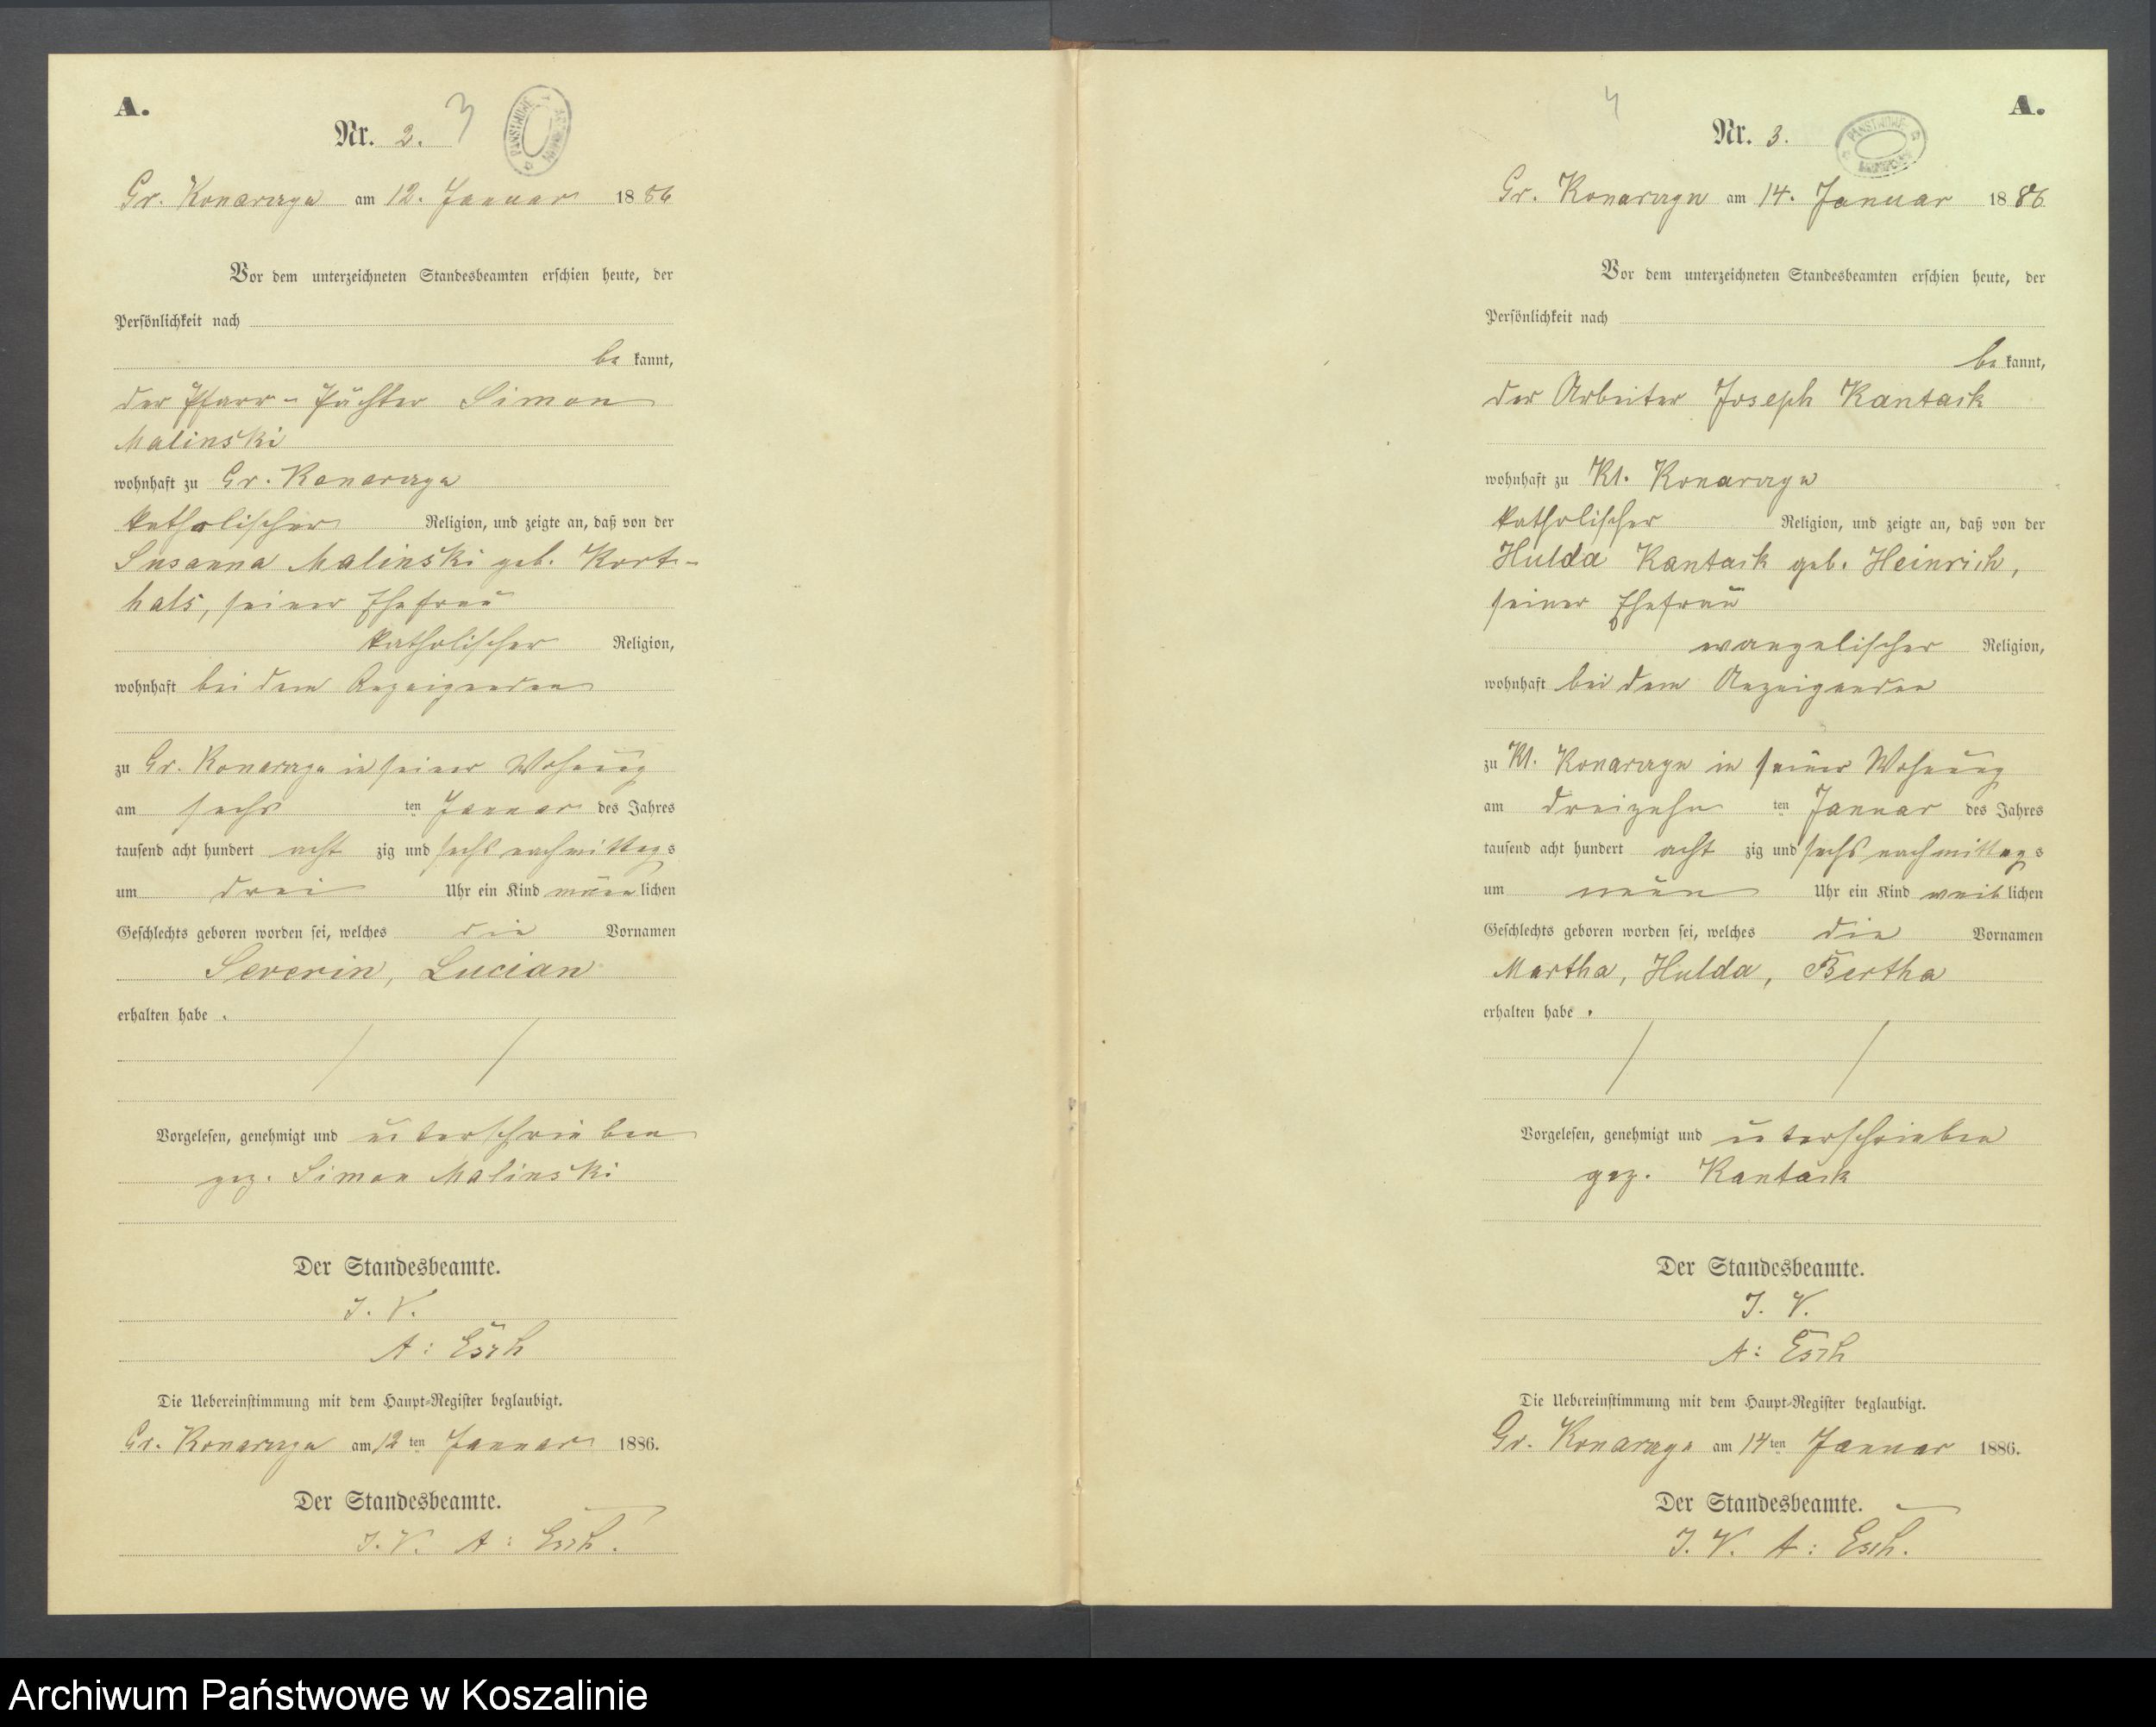 A.
Nr. 2.
3
Gr. Konarczyn am 12. Januar 1886
Vor dem unterzeichneten Standesbeamten erschien heute, der
Persönlichkeit nach
be kannt,
der Pfarr-Pächter Simon
Malinski
wohnhaft zu Gr. Konarczyn
katholischer Religion, und zeigte an, daß von der
Susanna Malinski geb. Kort-
hals, seiner Ehefrau
katholischer Religion,
wohnhaft bei dem Anzeigenden
zu Gr. Konarczyn in seiner Wohnung
am sechs ten Januar des Jahres
tausend acht hundert acht zig und sechs nachmittags
um drei Uhr ein Kind männ lichen
Geschlechts geboren worden sei, welches die Vornamen
Severin, Lucian
erhalten habe .
Vorgelesen, genehmigt und unterschrieben
gez. Simon Malinski
Der Standesbeamte.
J. V.
A: Esch
Die Uebereinstimmung mit dem Haupt-Register beglaubigt.
Gr. Konarczyn am 12 ten Januar 1886.
Der Standesbeamte.
J. V. A: Esch.
4
A.
Nr. 3.
Gr. Konarczyn am 14. Januar 1886
Vor dem unterzeichneten Standesbeamten erschien heute, der
Persönlichkeit nach
be kannt,
der Arbeiter Joseph Kantack
wohnhaft zu Kl. Konarczyn
katholischer Religion, und zeigte an, daß von der
Hulda Kantack geb. Heinrich,
seiner Ehefrau
evangelischer Religion,
wohnhaft bei dem Anzeigenden
zu Kl. Konarczyn in seiner Wohnung
am dreizehn ten Januar des Jahres
tausend acht hundert acht zig und sechs nachmittags
um neun Uhr ein Kind weib lichen
Geschlechts geboren worden sei, welches die Vornamen
Martha, Hulda, Bertha
erhalten habe .
Vorgelesen, genehmigt und unterschrieben
gez. Kantack
Der Standesbeamte.
J. V.
A: Esch
Die Uebereinstimmung mit dem Haupt-Register beglaubigt.
Gr. Konarczyn am 14 ten Januar 1886.
Der Standesbeamte.
J. V. A: Esch.
Archiwum Państwowe w Koszalinie